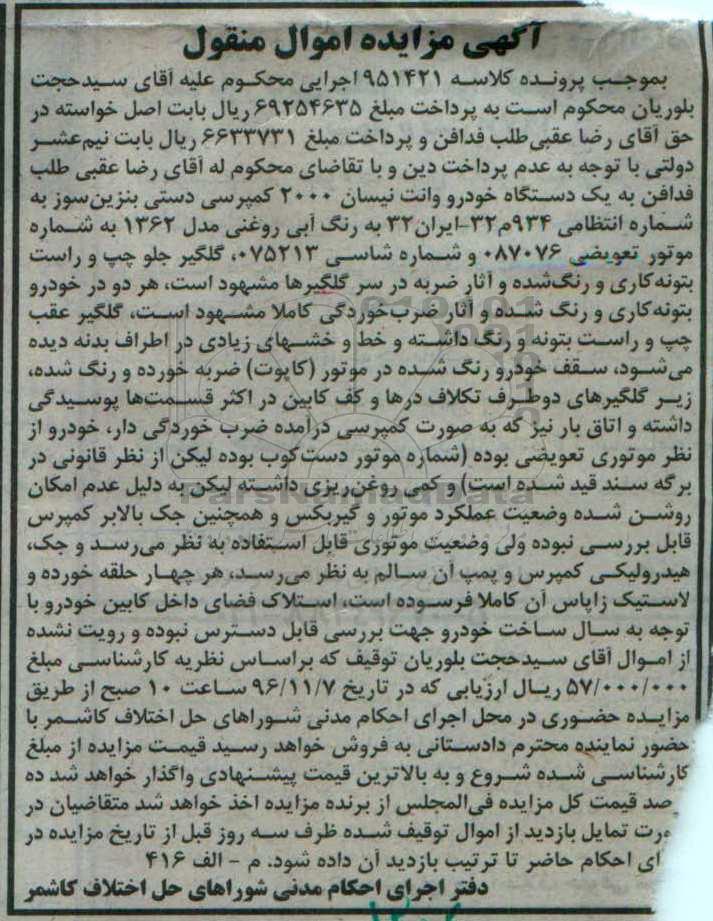 آگهی مزایده اموال منقول
بموجب پرونده کلاسه ۹۵۱۴۲۱ اجرایی محکوم علیه آقای سیدحجت
بلوریان محکوم است به پرداخت مبلغ ۶۹۲۵۴۶۳۵ ریال بابت اصل خواسته در
حق آقای رضا عقبی‌طلب فدافن و پرداخت مبلغ ۶۶۳۳۷۳۱ ریال بابت نیم‌عشر
دولتی با توجه به عدم پرداخت دین و با تقاضای محکوم له آقای رضا عقبی طلب
فدافن به یک دستگاه خودرو وانت نیسان ۲۰۰۰ کمپرسی دستی بنزین‌سوز به
شماره انتظامی ۹۳۴م۳۲-ایران۳۲ به رنگ آبی روغنی مدل ۱۳۶۲ به شماره
موتور تعویضی ۰۸۷۰۷۶ و شماره شاسی ۰۷۵۲۱۳، گلگیر جلو چپ و راست
بتونه‌کاری و رنگ‌شده و آثار ضربه در سر گلگیرها مشهود است، هر دو در خودرو
بتونه‌کاری و رنگ شده و آثار ضرب‌خوردگی کاملا مشهود است، گلگیر عقب
چپ و راست بتونه و رنگ داشته و خط و خشهای زیادی در اطراف بدنه دیده
می‌شود، سقف خودرو رنگ شده در موتور (کاپوت) ضربه خورده و رنگ شده،
زیر گلگیرهای دوطرف تکلاف درها و کف کابین در اکثر قسمت‌ها پوسیدگی
داشته و اتاق بار نیز که به صورت کمپرسی درآمده ضرب خوردگی دار، خودرو از
نظر موتوری تعویضی بوده (شماره موتور دست‌کوب بوده لیکن از نظر قانونی در
برگه سند قید شده است) و کمی روغن‌ریزی داشته لیکن به دلیل عدم امکان
روشن شده وضعیت عملکرد موتور و گیربکس و همچنین جک بالابر کمپرس
قابل بررسی نبوده ولی وضعیت موتوری قابل استفاده به نظر می‌رسد و جک،
هیدرولیکی کمپرس و پمپ آن سالم به نظر می‌رسد، هر چهار حلقه خورده و
لاستیک زاپاس آن کاملا فرسوده است، استلاک فضای داخل کابین خودرو با
توجه به سال ساخت خودرو جهت بررسی قابل دسترس نبوده و رویت نشده
از اموال آقای سیدحجت بلوریان توقیف که براساس نظریه کارشناسی مبلغ
۵۷/۰۰۰/۰۰۰ ریال ارزیابی که در تاریخ ۹۶/۱۱/۷ ساعت ۱۰ صبح از طریق
مزایده حضوری در محل اجرای احکام مدنی شوراهای حل اختلاف کاشمر با
حضور نماینده محترم دادستانی به فروش خواهد رسید قیمت مزایده از مبلغ
کارشناسی شده شروع و به بالاترین قیمت پیشنهادی واگذار خواهد شد ده
صد قیمت کل مزایده فی‌المجلس از برنده مزایده اخذ خواهد شد متقاضیان در
رت تمایل بازدید از اموال توقیف شده ظرف سه روز قبل از تاریخ مزایده در
ای احکام حاضر تا ترتیب بازدید آن داده شود. م - الف ۴۱۶
دفتر اجرای احکام مدنی شوراهای حل اختلاف کاشمر